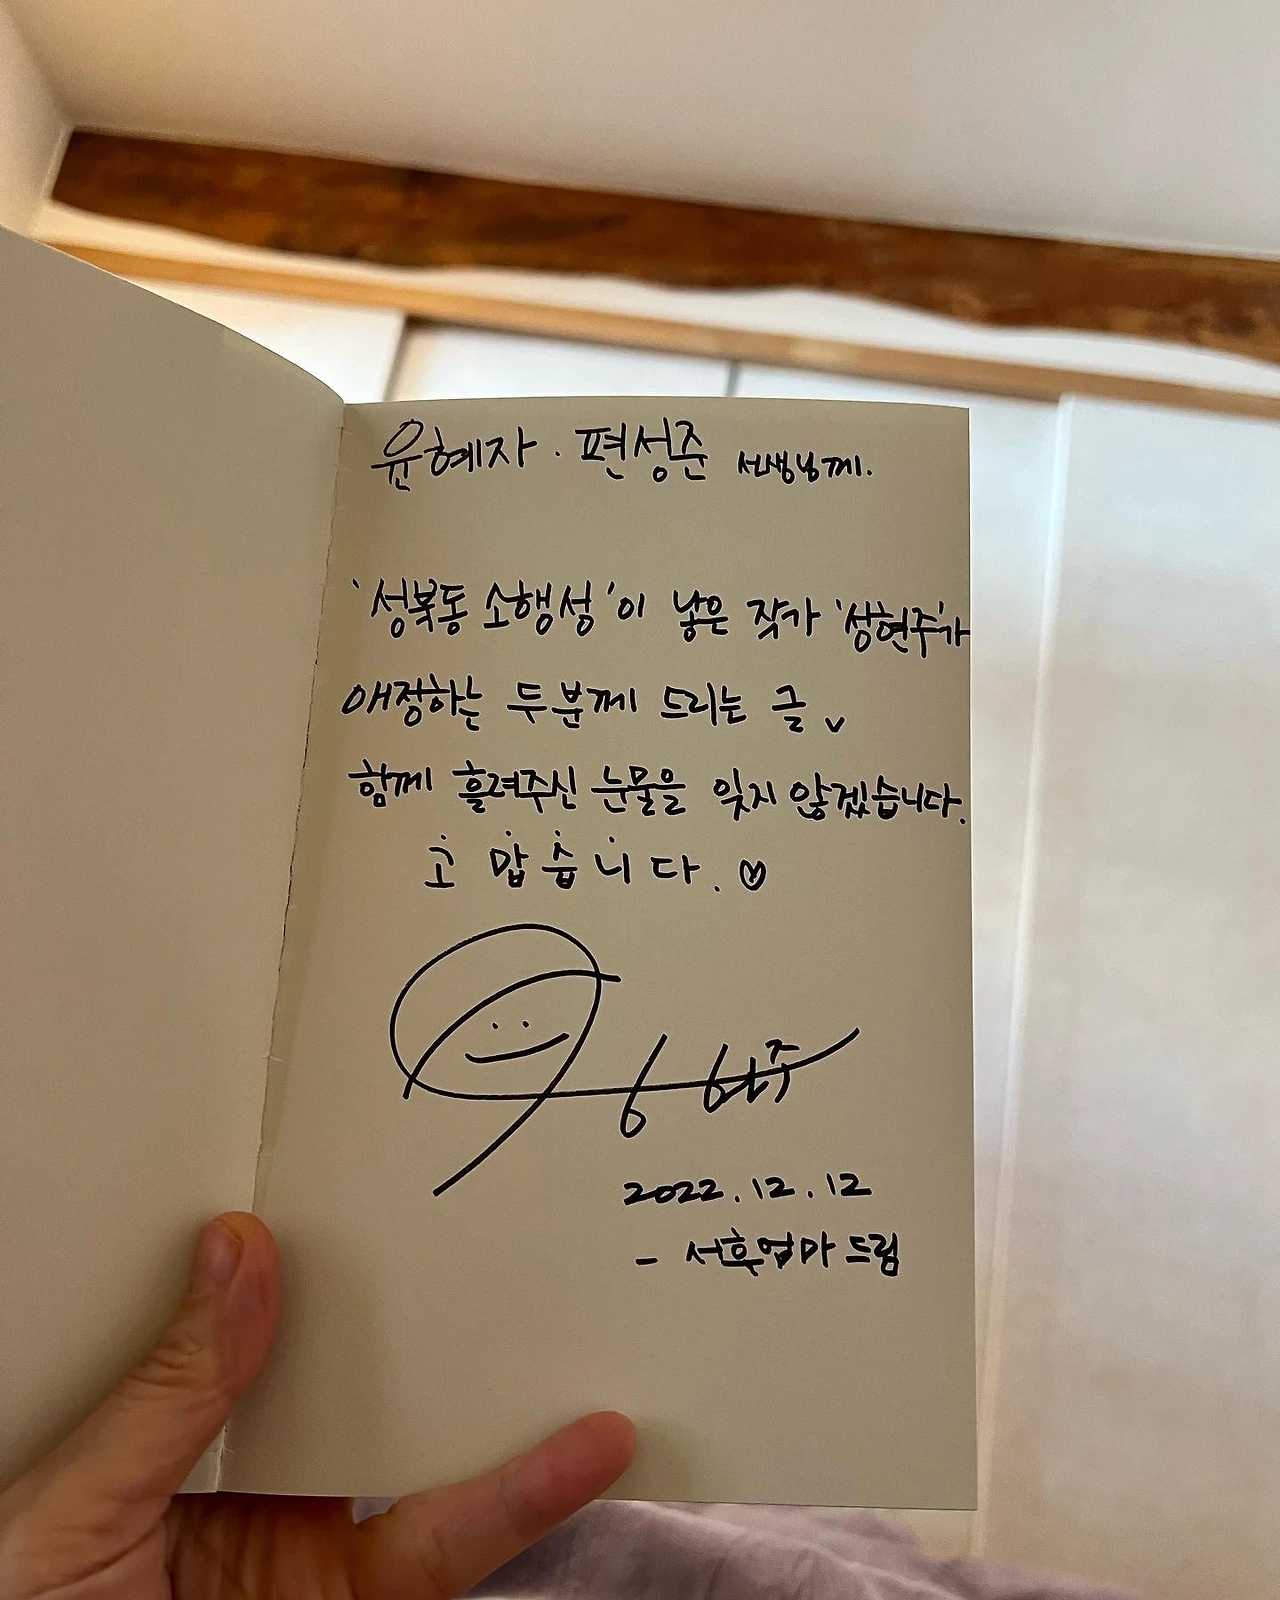 윤혜자 · 편성준 선생님께.
'성북동 소행성'이 낳은 작가 '성현주'가
애정하는 두분께 드리는 글
함께 흘려주신 눈물을 잊지 않겠습니다.
고맙습니다. ♡
2022.12.12
- 서후엄마 드림